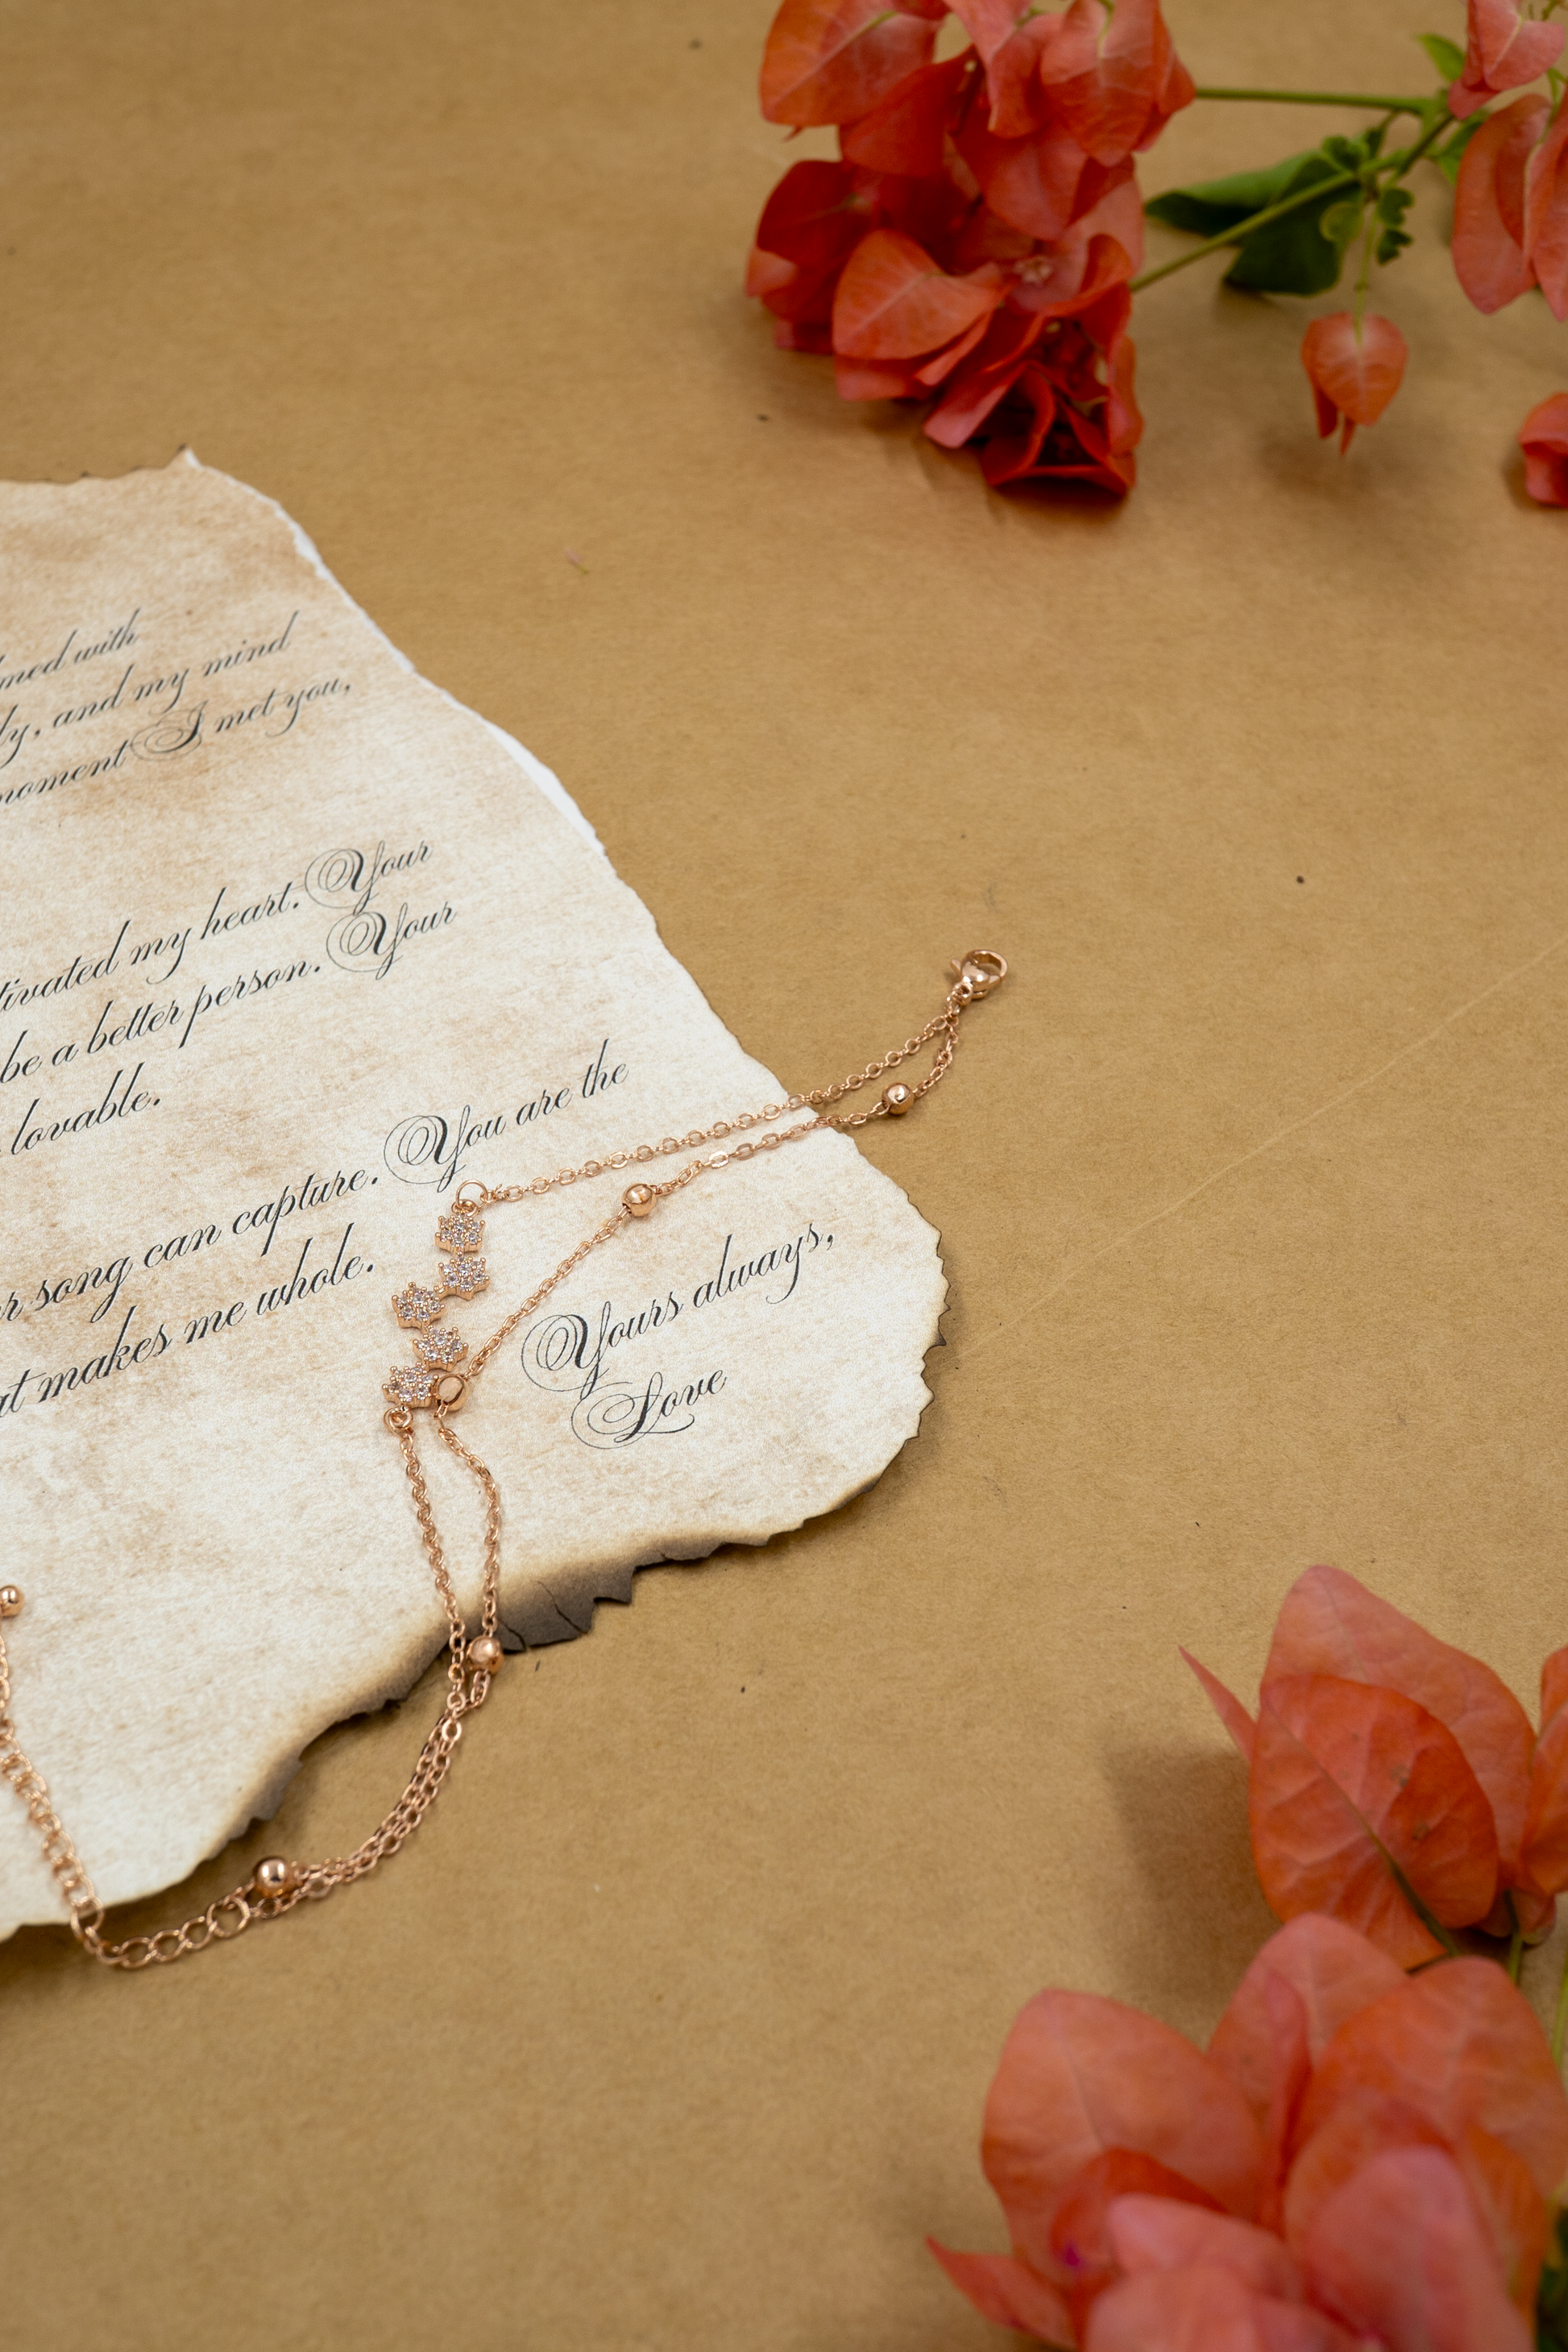 with
and my mind
moment I met you,
my heart. Your
be a better person. Your
lovable.
song can capture. You are the
makes me whole.
Yours always,
Love